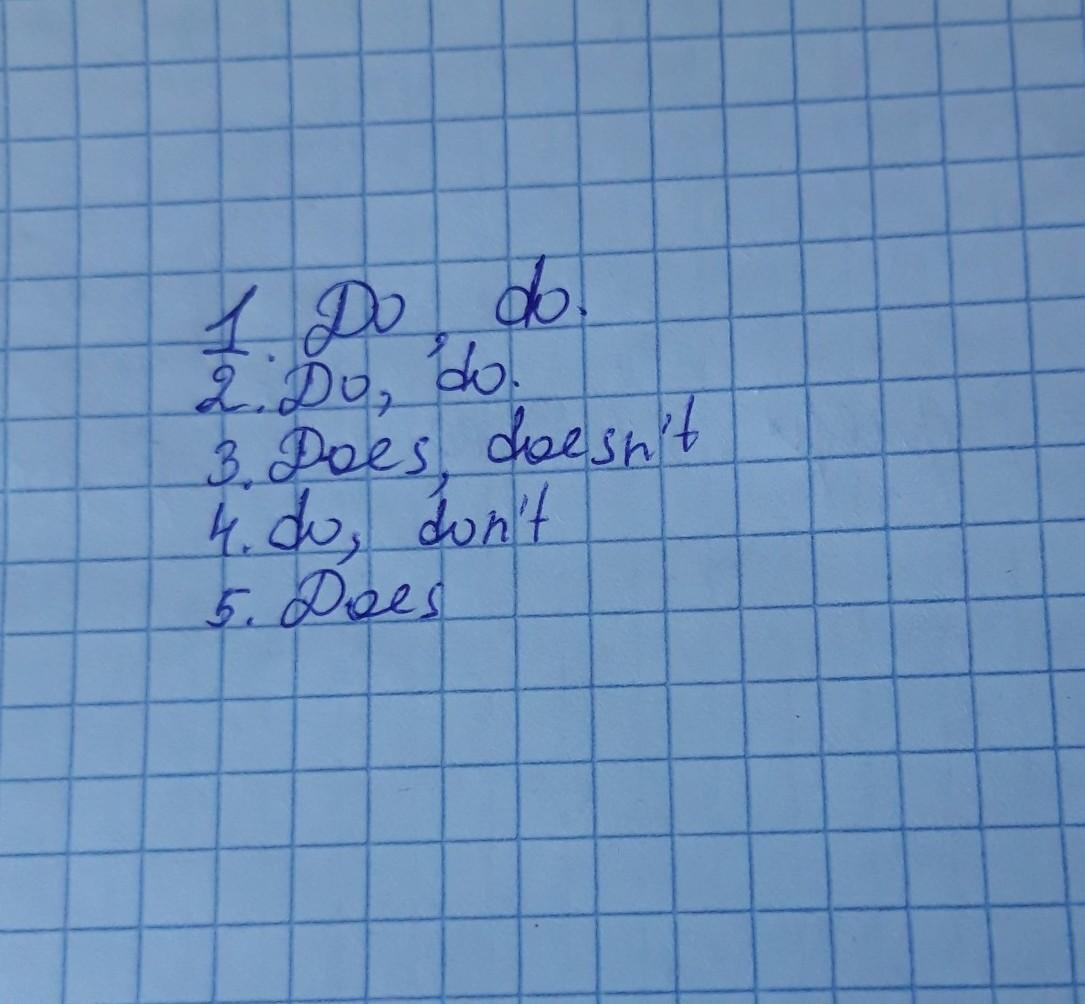 1. Do, do.
2. Do, do.
3. Does, doesn't
4. do, don't
5. Does